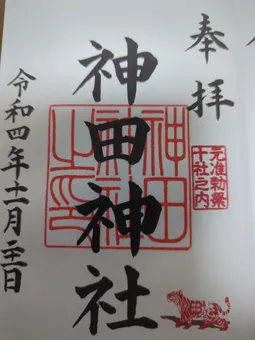 奉拝
元准勅祭
十社之内
神田神社
令和四年十一月二十三日